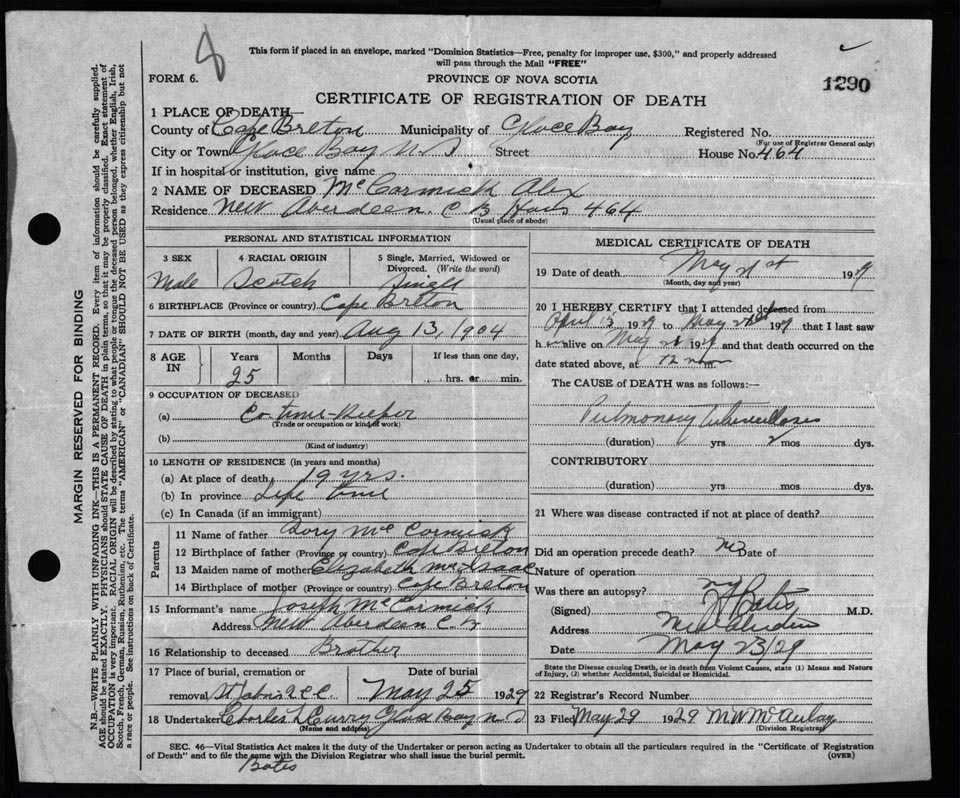 8
This form if placed in an envelope, marked "Dominion Statistics—Free, penalty for improper use, $300," and properly addressed
will pass through the Mail "FREE"
FORM 6.
PROVINCE OF NOVA SCOTIA
1290
CERTIFICATE OF REGISTRATION OF DEATH
1 PLACE OF DEATH
County of Cape Breton Municipality of Glace Bay Registered No.
(For use of Registrar General only)
City or Town Glace Bay N S Street House No. 464
If in hospital or institution, give name
2 NAME OF DECEASED McCormick Alex
Residence New Aberdeen C B Hous 464
(Usual place of abode)
PERSONAL AND STATISTICAL INFORMATION
3 SEX 4 RACIAL ORIGIN 5 Single, Married, Widowed or
Divorced. (Write the word)
Male Scotch Single
6 BIRTHPLACE (Province or country) Cape Breton
7 DATE OF BIRTH (month, day and year) Aug 13, 1904
8 AGE IN Years Months Days If less than one day,
25 hrs. or min.
9 OCCUPATION OF DECEASED
(a) Co time Keeper
(Trade or occupation or kind of work)
(b)
(Kind of industry)
10 LENGTH OF RESIDENCE (in years and months)
(a) At place of death 19 yrs.
(b) In province Life time
(c) In Canada (if an immigrant)
Parents
11 Name of father Rory McCormick
12 Birthplace of father (Province or country) Cape Breton
13 Maiden name of mother Elizabeth McIsaac
14 Birthplace of mother (Province or country) Cape Breton
15 Informant's name Joseph McCormick
Address New Aberdeen C. B
16 Relationship to deceased Brother
17 Place of burial, cremation or Date of burial
removal St Johns May 25 1929
18 Undertaker Charles L Curry Glace Bay N S
(Name and address)
MEDICAL CERTIFICATE OF DEATH
19 Date of death May 21st 1929
(Month, day and year)
20 I HEREBY CERTIFY that I attended deceased from
April 13 1929 to May 21st 1929 that I last saw
h alive on May 21 1929 and that death occurred on the
date stated above, at 12 noon m.
The CAUSE of DEATH was as follows:
Pulmonary Tuberculosis
(duration) yrs. 2 mos dys.
CONTRIBUTORY
(duration) yrs. mos. dys.
21 Where was disease contracted if not at place of death?
Did an operation precede death? No Date of
Nature of operation
Was there an autopsy? no
(Signed) Bates M.D.
Address New Aberdeen
Date May 23/29
State the Disease causing Death, or in death from Violent Causes, state (1) Means and Nature
of Injury, (2) whether Accidental, Suicidal or Homicidal.
22 Registrar's Record Number
23 Filed May 29 1929 M W McAulay
(Division Registrar)
SEC. 46—Vital Statistics Act makes it the duty of the Undertaker or person acting as Undertaker to obtain all the particulars required in the "Certificate of Registration
of Death" and to file the same with the Division Registrar who shall issue the burial permit.
(OVER)
Bates
MARGIN RESERVED FOR BINDING
N.B.—WRITE PLAINLY WITH UNFADING INK—THIS IS A PERMANENT RECORD. Every item of information should be carefully supplied.
AGE should be stated EXACTLY. PHYSICIANS should STATE CAUSE OF DEATH in plain terms, so that it may be properly classified. Exact statement of
OCCUPATION is very important. RACIAL ORIGIN will be described by stating to what people or tongue the deceased person belonged, whether English, Irish,
Scotch, French, German, Russian, Ruthenian, etc. The terms "AMERICAN" or "CANADIAN" SHOULD NOT BE USED as they express citizenship but not
a race or people. See instructions on back of Certificate.